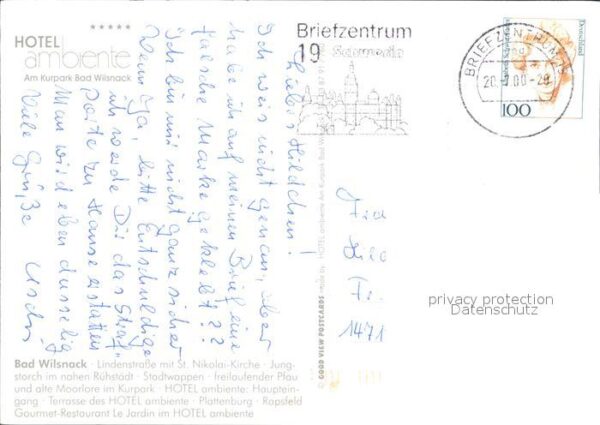 HOTEL
ambiente
Am Kurpark Bad Wilsnack
Briefzentrum
19
BRIEFZENTRUM
Deutschland
100
Liebes Hildchen!
Ich weis nicht genau, aber
habe ich auf meinen Brief eine
falsche Marke geklebt??
Ich bin mir nicht ganz sicher
Wenn ja, bitte Entschuldige
ich werde Dir das Straf-
porto zu Hause erstatten
Man wird eben dusselig
Viele Grüße Uschi
© GOOD VIEW POSTCARDS
HOTEL ambiente Am Kurpark Bad Wilsnack
1471
privacy protection
Datenschutz
Bad Wilsnack · Lindenstraße mit St. Nikolai-Kirche · Jung-
storch im nahen Rühstädt · Stadtwappen · freilaufender Pfau
und alte Moorlore im Kurpark · HOTEL ambiente: Hauptein-
gang · Terrasse des HOTEL ambiente · Plattenburg · Rapsfeld
Gourmet-Restaurant Le Jardin im HOTEL ambiente